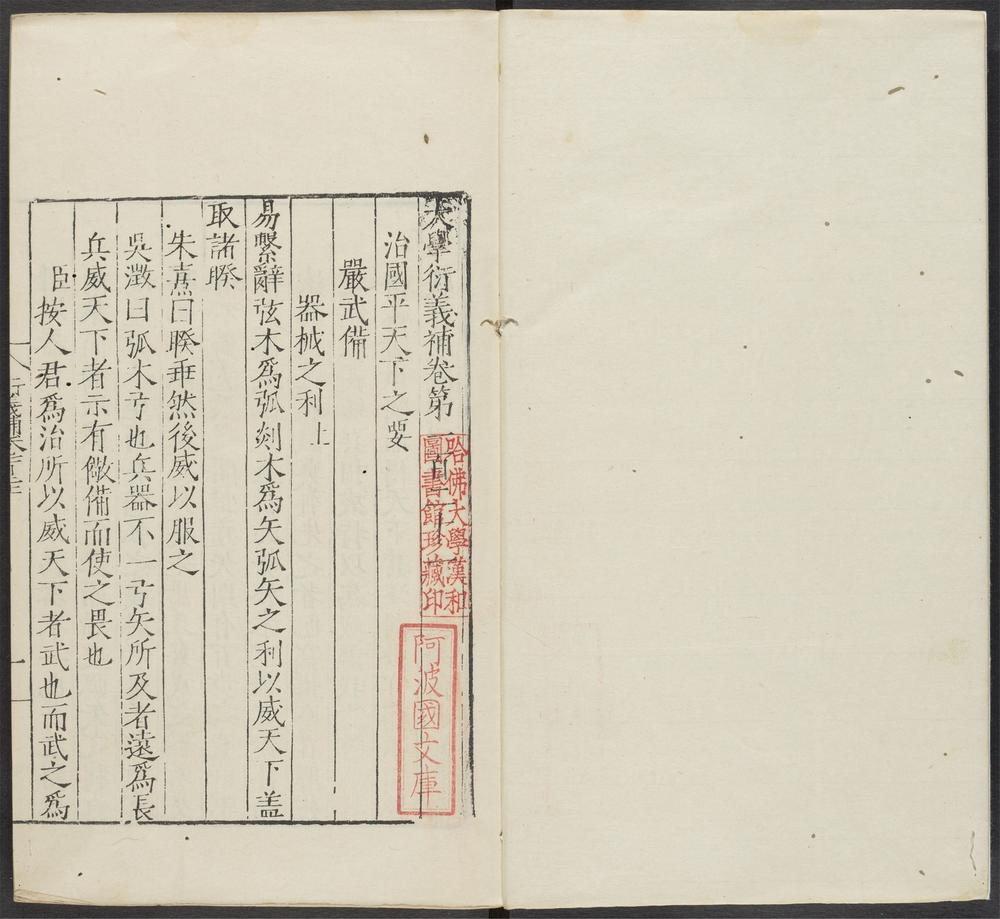 大學衍義補卷第一百二十二
治國平天下之要
嚴武備
器械之利上
易繫辭弦木爲弧剡木爲矢弧矢之利以威天下盖
取諸睽
朱熹曰睽乖然後威以服之
吳澂曰弧木弓也兵器不一弓矢所及者遠爲長
兵威天下者示有儆備而使之畏也
臣按人君爲治所以威天下者武也而武之爲
哈佛大學漢和
圖書館珍藏印
阿波國文庫